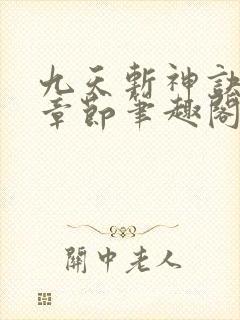 九天斬神訣
章節筆趣閣
關中老人